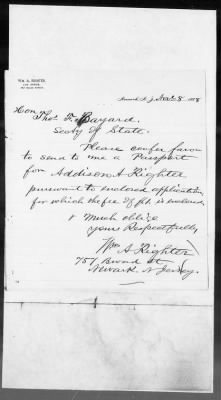 WM A. RIGHTER,
LAW OFFICES,
757 BROAD STREET,
Newark N. J. 8
Hon.
Thos. F. Bayard.
Secty of State.
Please confer favor
to send to me a Passport
for Addison A Righter
pursuant to enclosed application
for which the fee of $1. is enclosed.
& Much oblige
yours Respectfully
Wm A Righter
757 Broad St
Newark N Jersey.